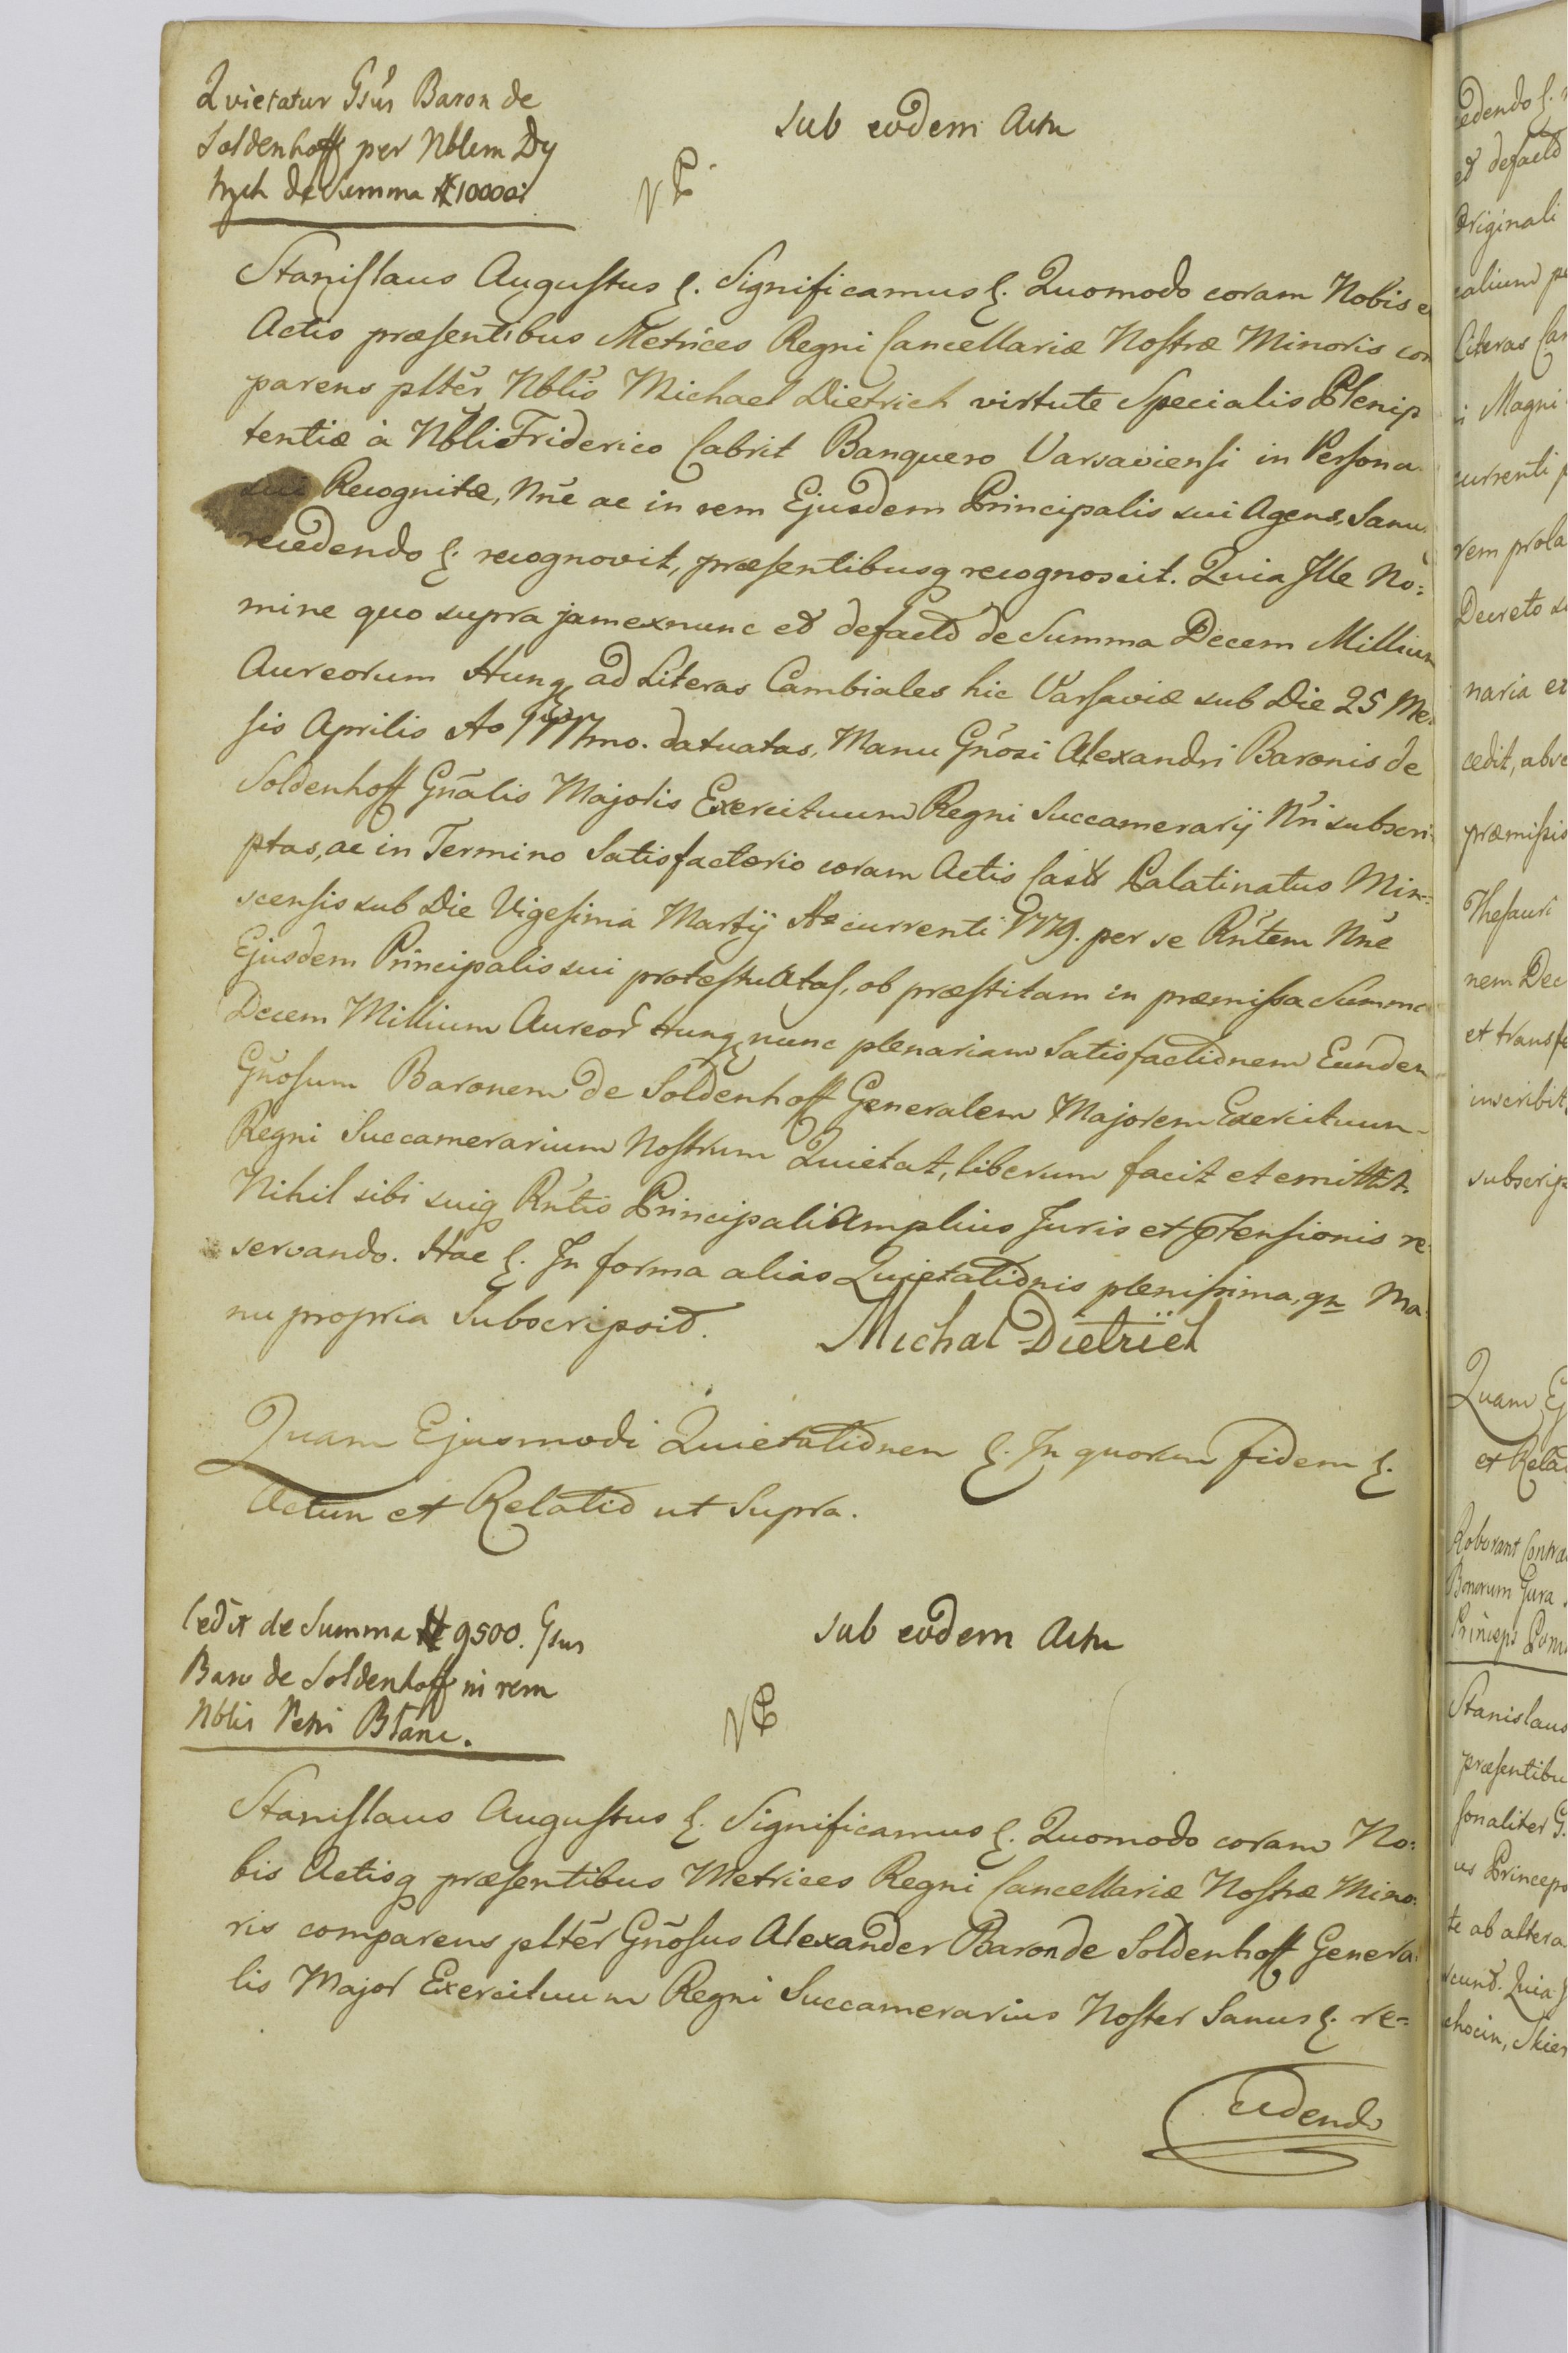 Quietatur Gsus Baron de
Soldenhoff per Nblem Dy
trych de Summa # 10000.
Sub eodem Actu
Stanislaus Augustus &. Significamus &. Quomodo coram Nobis
Actis præsentibus Metrices Regni Cancellariæ Nostræ Minoris com
parens pltẽr Nblis Michael Dietrich virtute Specialis Plenip
tentiæ à Nbli Friderico Cabrit Banquero Varsaviensi in Persona
sui Recognitæ, Nñe ac in rem Ejusdem Principalis sui Agens, Sanu
recedendo &. recognovit, præsentibusq recognoscit. Quia Ille No:
mine quo supra jam exnunc et defacto de Summa Decem Millium
Aureorum Hung ad Literas Cambiales hic Varsaviæ sub Die 25 Me:
sis Aprilis Ao 1777mo. datuatas, Manu Gñosi Alexandri Baronis de
Soldenhoff Gñalis Majoris Exercituum Regni Succamerarij Nri subscri:
ptas, ac in Termino Satisfactorio coram Actis Castr Palatinatus Min:
scensis sub Die Vigesima Martij Ao currenti 1779. per se Rñtem Nñe
Ejusdem Principalis sui protestuatas, ob præstitam in præmissa Summa
Decem Millium Aureor Hung nunc plenariam Satisfactionem Eundem
Gñosum Baronem de Soldenhoff Generalem Majorem Exercituum
Regni Succamerarium Nostrum Quietat, liberum facit et emittit.
Nihil sibi suiq Rñtis Principali Amplius Juris et Ptensionis re
servando. Hac &. In forma alias Quietationis plenissima, qm Ma
nu propria Subscripsit. Michal Dietrich
Quam Ejusmodi Quietationem &. In quorum fidem &.
Actum et Relatio ut Supra.
Cedit de Summa # 9500. Gsus
Baro de Soldenhoff in rem
Nblis Petri Blanc.
Sub eodem Actu
Stanislaus Augustus &. Significamus &. Quomodo coram No:
bis Actisq præsentibus Metrices Regni Cancellariæ Nostræ Mino:
ris comparens pltẽr Gñosus Alexander Baron de Soldenhoff Genera:
lis Major Exercituum Regni Succamerarius Noster Sanus &. re=
cedendo
edendo &.
et defacto
Originali
calium
Literas
i Magni
currenti
rem prola
Decreto
naria et
cedit,
præmissis
Thesauri
nem Dec
et transfe
inscribit
subscrip
Quam Ej
et Relat
Roborant Contra
Bonorum Jura
Princeps
Stanislaus
præsentibu
sonaliter G.
us Princeps
te ab altera
scunt. Quia
chocin, Skier